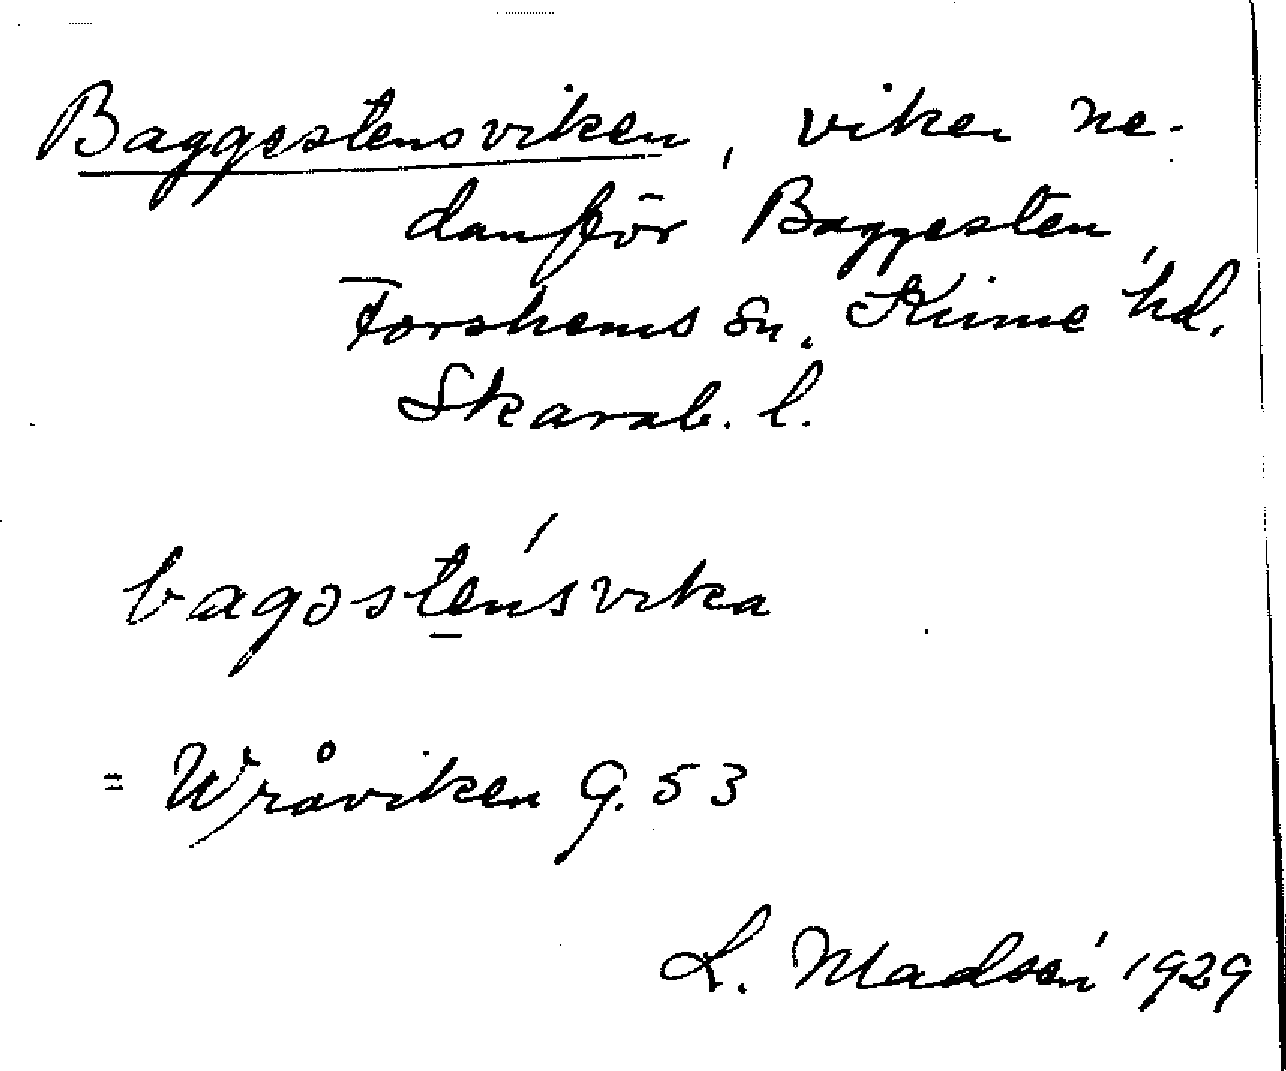 Baggestensviken, viken ne-
danför Baggesten,
Forshems sn. Kinne hd.
Skarab. l.
bagəste̲ńsvika
= Wråviken G. 53
L. Madsén 1929